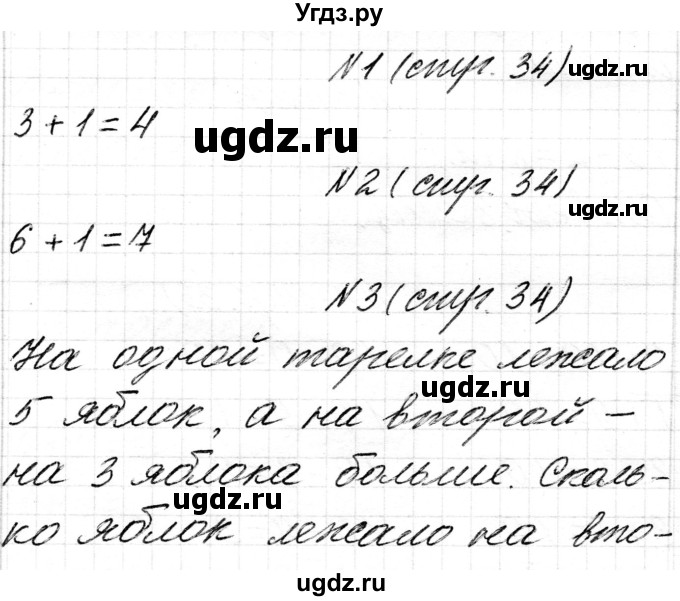 Угдз.ру
№1 (стр. 34) ugdz.ru
3 + 1 = 4
ugdz.ru
№2 (стр. 34)
ugdz.ru
6 + 1 = 7
№3 (стр. 34)
На одной тарелке лежало
ugdz.ru
5 яблок, а на второй –
на 3 яблока больше. Сколь-
ugdz.ru
ко яблок лежало на вто-
ugdz.ru